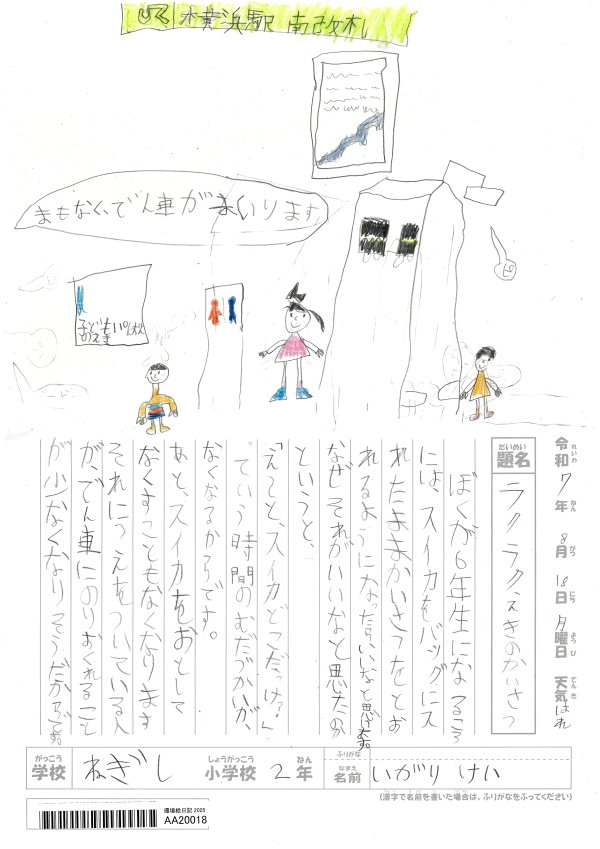 横浜駅 南改札
まもなく、でん車がまいります
子どもいっぱい
のえき
令和 7年 8月 18日 月曜日 天気 はれ
れいわ ねん がつ にち ようび てんき
だいめい
題名 ラクラクえきのかいさつ
ぼくが6年生になるころ
には、スイカをバッグに入
れたままかいさつをとお
れるようになったらいいなと思います。
なぜそれがいいなと思たのか
というと、
「えっと、スイカどこだっけ?」
っていう時間のむだづかいが、
なくなるからです。
あと、スイカをおとして
なくすこともなくなります
それにつえをついている人
が、でん車にのりおくれること
が少なくなりそうだからです。
がっこう しょうがっこう ねん ふりがな なまえ
学校 ねぎし 小学校 2年 名前 いがり けい
(漢字で名前を書いた場合は、ふりがなをふってください)
環境絵日記 2025
AA20018